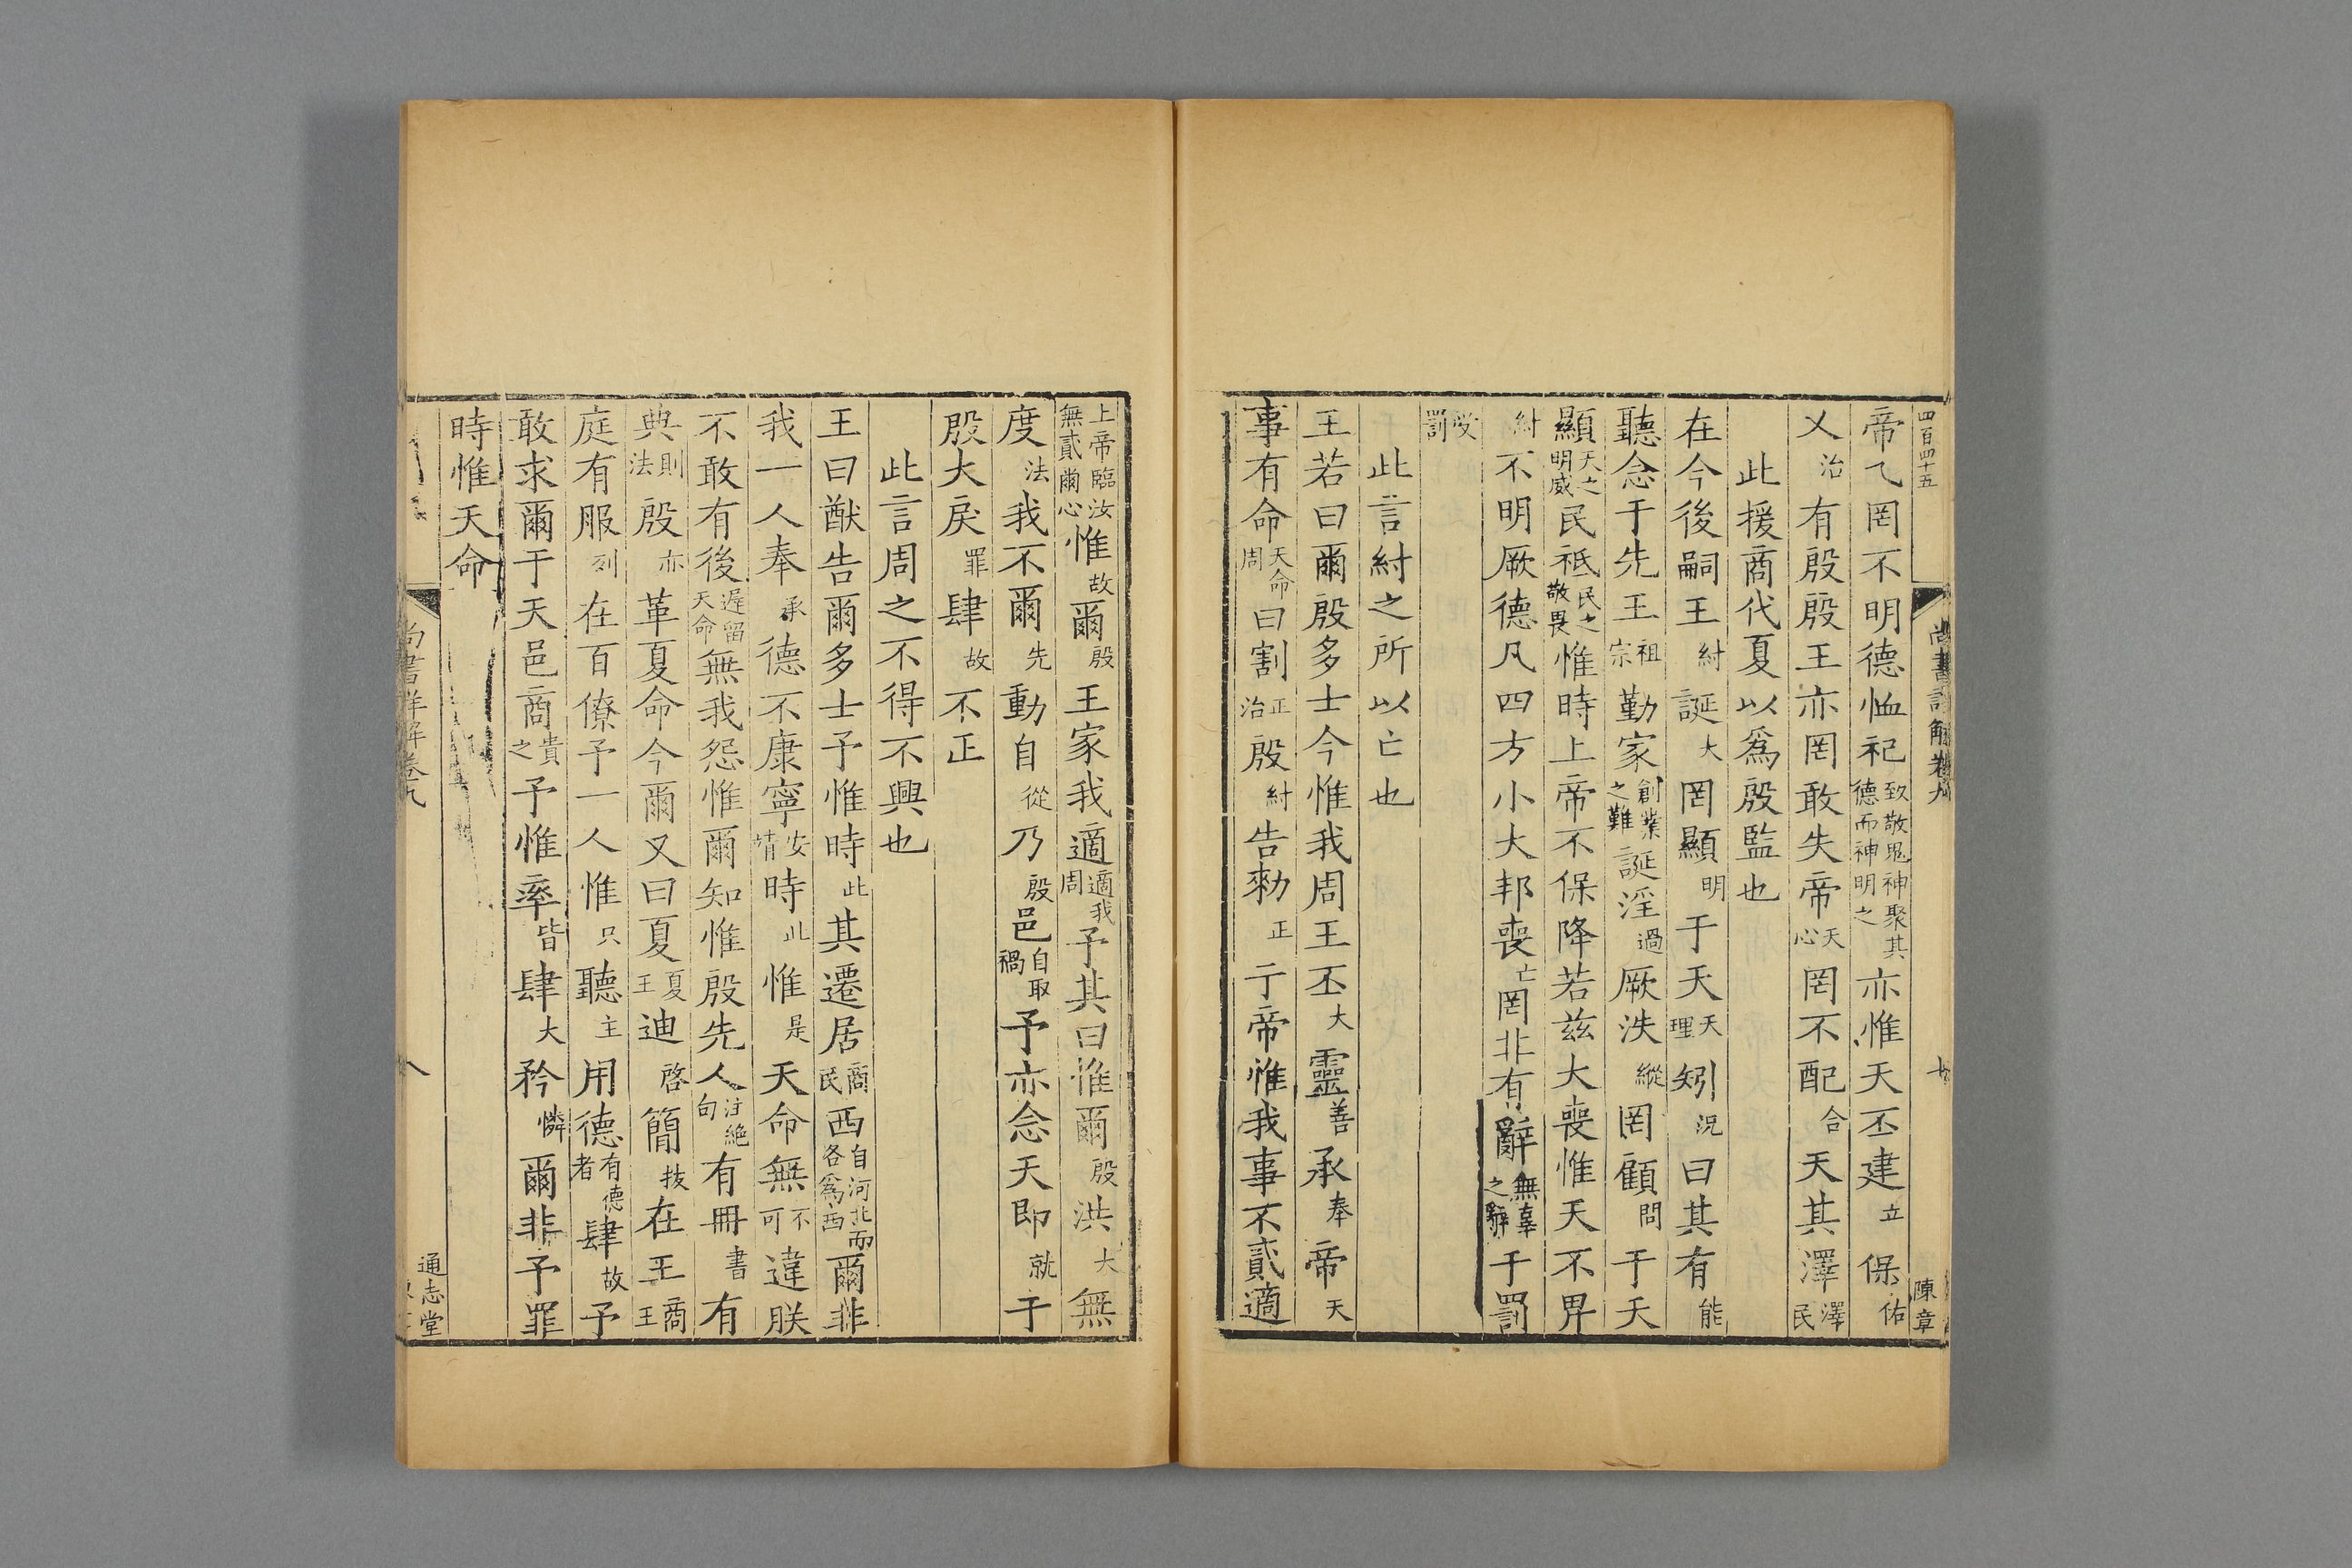 四百四十五
陳章
帝乀罔不明德恤祀致敬鬼神聚其德而神明之亦惟天丕建立保佑
乂治有殷殷王亦罔敢失帝天心罔不配合天其澤澤民
此援商代夏以爲殷監也
在今後嗣王紂誕大罔顯明于天天理矧況曰其有能
聽念于先王祖宗勤家創業之難誕淫過厥泆縱罔顧問于天
顯天之明威民祗民之敬畏惟時上帝不保降若茲大喪惟天不畀
紂不明厥德凡四方小大邦喪亡罔非有辭無辜之辭于罰
受罰
此言紂之所以亡也
王若曰爾殷多士今惟我周王丕大靈善承奉帝天
事有命天命周曰割正治殷紂告勑正于帝惟我事不貳適
上帝臨汝無貳爾心惟故爾殷王家我適適我周予其曰惟爾殷洪大無
度法我不爾先動自從乃殷邑自取禍予亦念天即就于
殷大戾罪肆故不正
此言周之不得不興也
王曰猷告爾多士予惟時此其遷居商民西自河北而各爲西爾非
我一人奉承德不康寧安靖時此惟是天命無不可違朕
不敢有後遲留天命無我怨惟爾知惟殷先人注絶句有冊書有
典則法殷亦革夏命今爾又曰夏夏王迪啓簡拔在王商王
庭有服列在百僚予一人惟只聽主用德有德者肆故予
敢求爾于天邑商貴之予惟率皆肆大矜憐爾非予罪
時惟天命
尚書詳解卷九
八
通志堂